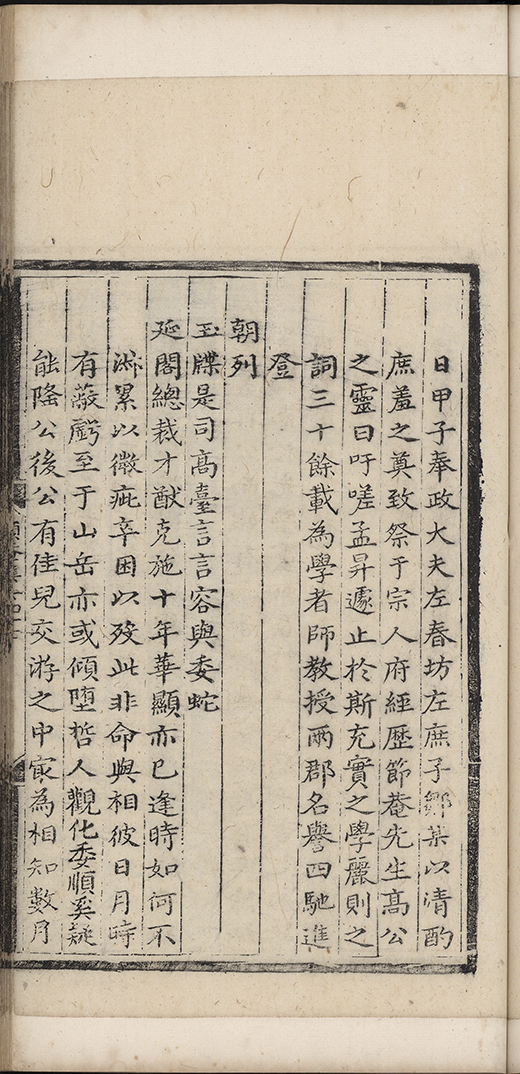 日甲子奉政大夫左春坊左庶子鄒某以清酌
庶羞之奠致祭于宗人府經歷節菴先生高公
之靈曰吁嗟孟昇遽止於斯充實之學麗則之
詞三十餘載為學者師教授兩郡名譽四馳進
登
朝列
玉牒是司高臺言言容與委蛇
延閣總裁才猷克施十年華顯亦已逢時如何不
淑累以微疵卒困以歿此非命與相彼日月時
有蔽虧至于山岳亦或傾墮哲人觀化委順奚疑
能隆公後公有佳兒交游之中冣為相知數月